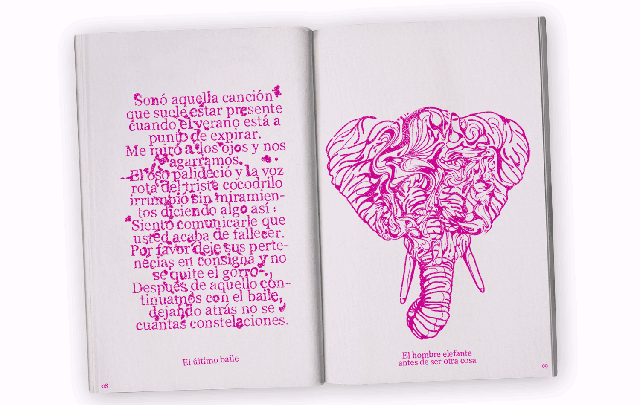 Sonó aquella canción
que suele estar presente
cuando el verano está a
punto de expirar.
Me miró a los ojos y nos
agarramos.
El oso palideció y la voz
rota del triste cocodrilo
irrumpió sin miramien-
tos diciendo algo así :
"Siento comunicarle que
usted acaba de fallecer.
Por favor deje sus perte-
nencias en consigna y no
se quite el gorro".
Después de aquello con-
tinuamos con el baile,
dejando atrás no se
cuántas constelaciones.
El último baile
08
El hombre elefante
antes de ser otra cosa
09